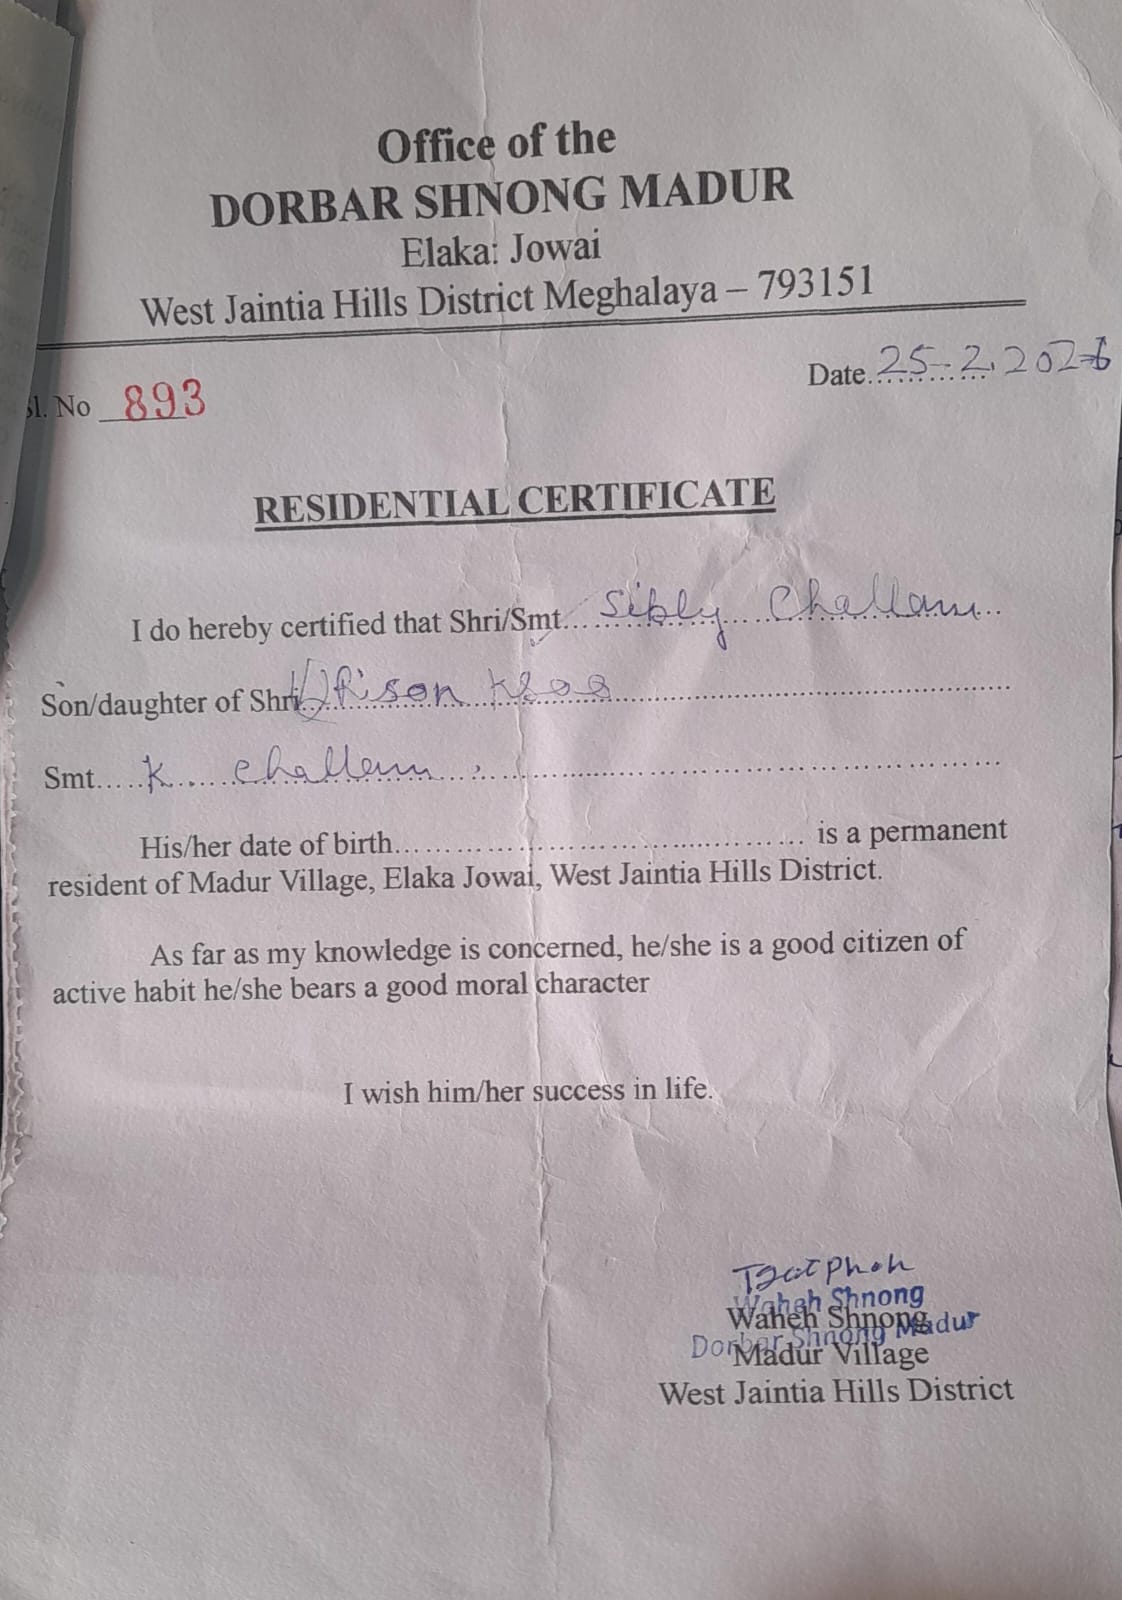 Office of the
DORBAR SHNONG MADUR
Elaka: Jowai
West Jaintia Hills District Meghalaya – 793151
Date 25-2.2026
Sl. No 893
RESIDENTIAL CERTIFICATE
I do hereby certified that Shri/Smt Sibly Challam
Son/daughter of Shri
Smt K. Challam
His/her date of birth is a permanent
resident of Madur Village, Elaka Jowai, West Jaintia Hills District.
As far as my knowledge is concerned, he/she is a good citizen of
active habit he/she bears a good moral character
I wish him/her success in life.
Waheh Shnong
Waheh Shnong
Dorbar Shnong Madur
Madur Village
West Jaintia Hills District